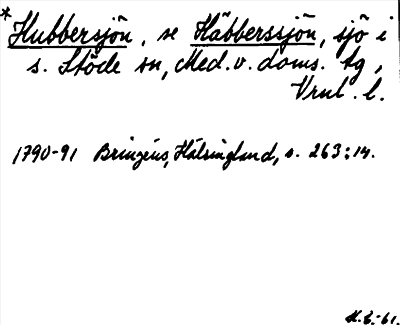 *Hubbersjön, se Häbberssjön, sjö i
s. Stöde sn, Med. v. doms. tg,
Vrnl. l.
1790-91 Bringéus, Hälsingland, s. 263:14.
H.E.-61.